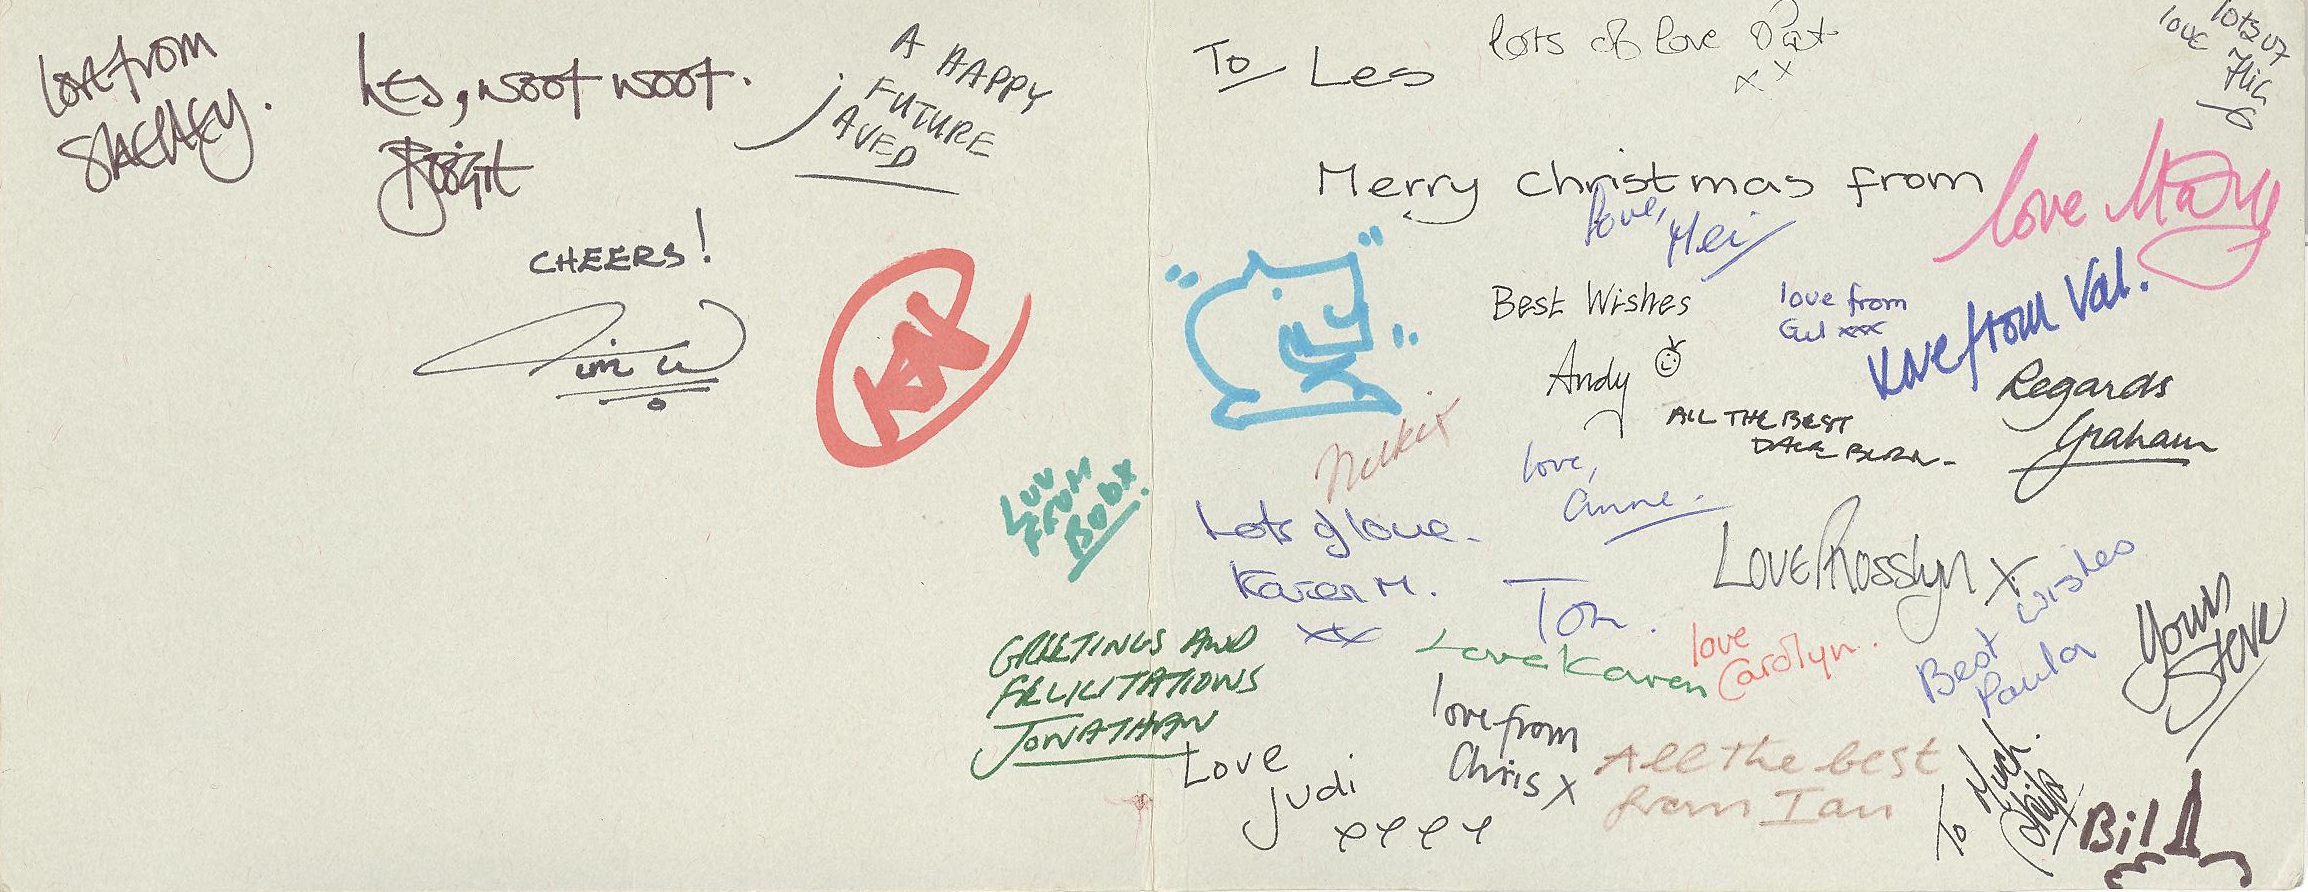 love from
SHERLEY.
Les, woot woot.
A HAPPY
FUTURE
AVED
CHEERS!
Tim W
KAX
LUV
FROM
BOB X.
GREETINGS AND
FELICITATIONS
JONATHAN
To Les
lots of love Pat
x x
lots of
love
Merry Christmas from
love Mary
love,
Mei
Best Wishes
Andy
love from
Gill xxx
Love from Val.
Regards
Graham
ALL THE BEST
DAVE
love,
Anne.
Lots of love.
Karen M.
xx
Tom.
Love Rosslyn X
Love Karen
love
Carolyn.
Best wishes
Paula
Yours
Steve
Love
Judi
xxxx
love from
Chris X
All the best
from Ian
To Much.
Bill